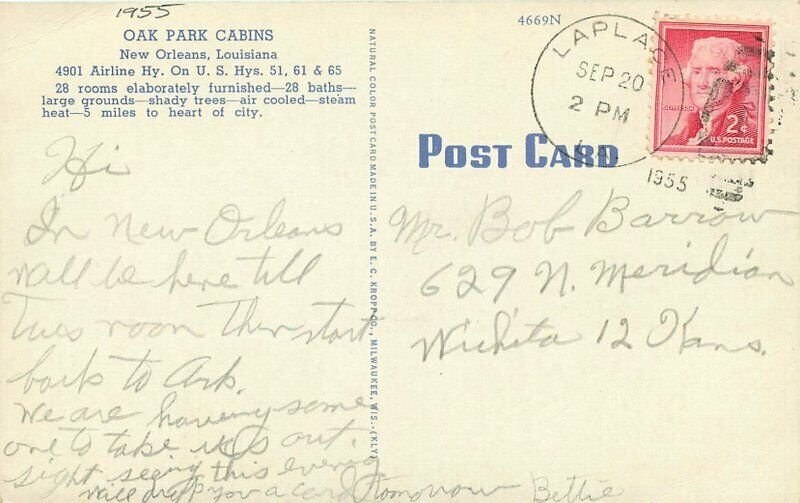 1955
OAK PARK CABINS
New Orleans, Louisiana
4901 Airline Hy. On U. S. Hys. 51, 61 & 65
28 rooms elaborately furnished—28 baths—
large grounds—shady trees—air cooled—steam
heat—5 miles to heart of city.
Hi
In New Orleans
will be here till
Tues noon Then start
back to Ark.
We are having some
one to take us out.
sight seeing this evening
will drop you a card tomorrow Bettie
NATURAL COLOR POST CARD MADE IN U.S.A. BY E. C. KROPP CO., MILWAUKEE, WIS.-(KLY)
4669N
LAPLACE
SEP 20
2 PM
LA.
1955
JEFFERSON
2¢
U.S. POSTAGE
POST CARD
Mr. Bob Barrow
629 N. Meridian
Wichita 12 Kans.